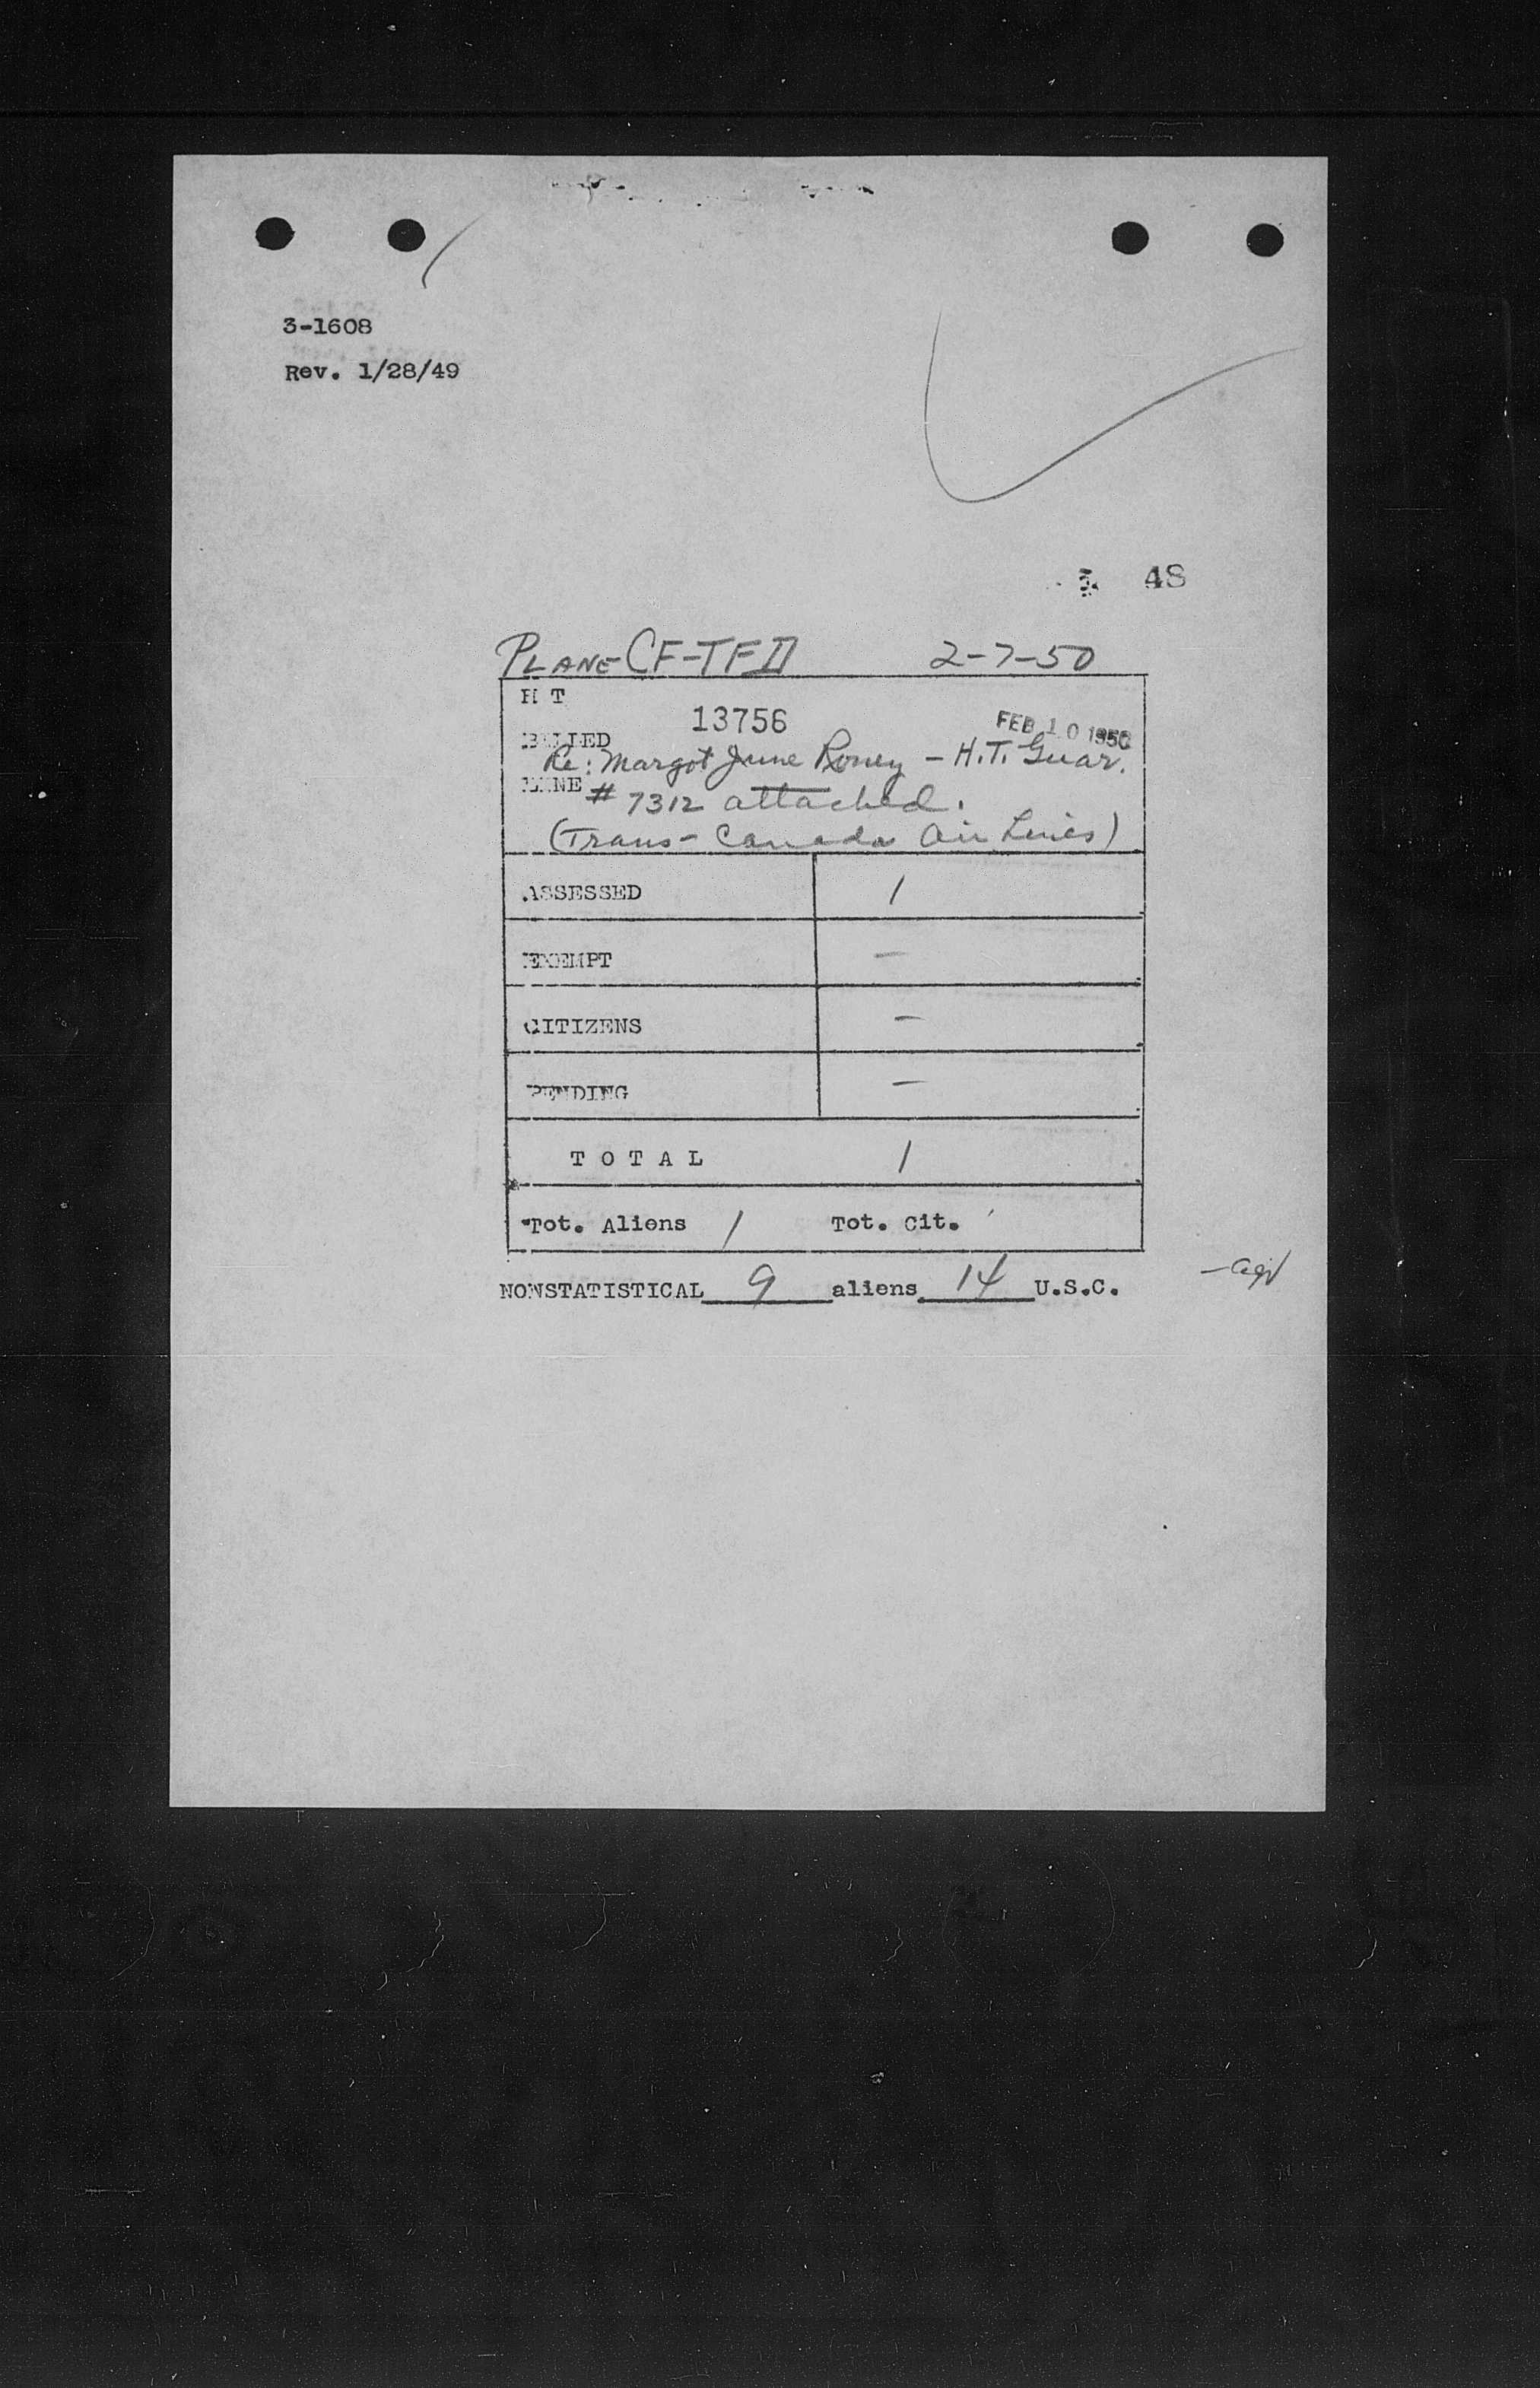 3-1608
Rev. 1/28/49
48
PLANE CF-TFD 2-7-50
H T
13756 FEB 10 1950
BILLED
Re: Margot June Roney - H.T. Guar.
LINE # 7312 attached.
(Trans-Canada Air Lines)
ASSESSED 1
EXEMPT -
CITIZENS -
PENDING -
TOTAL 1
Tot. Aliens 1 Tot. Cit.
NONSTATISTICAL 9 aliens 14 U.S.C.